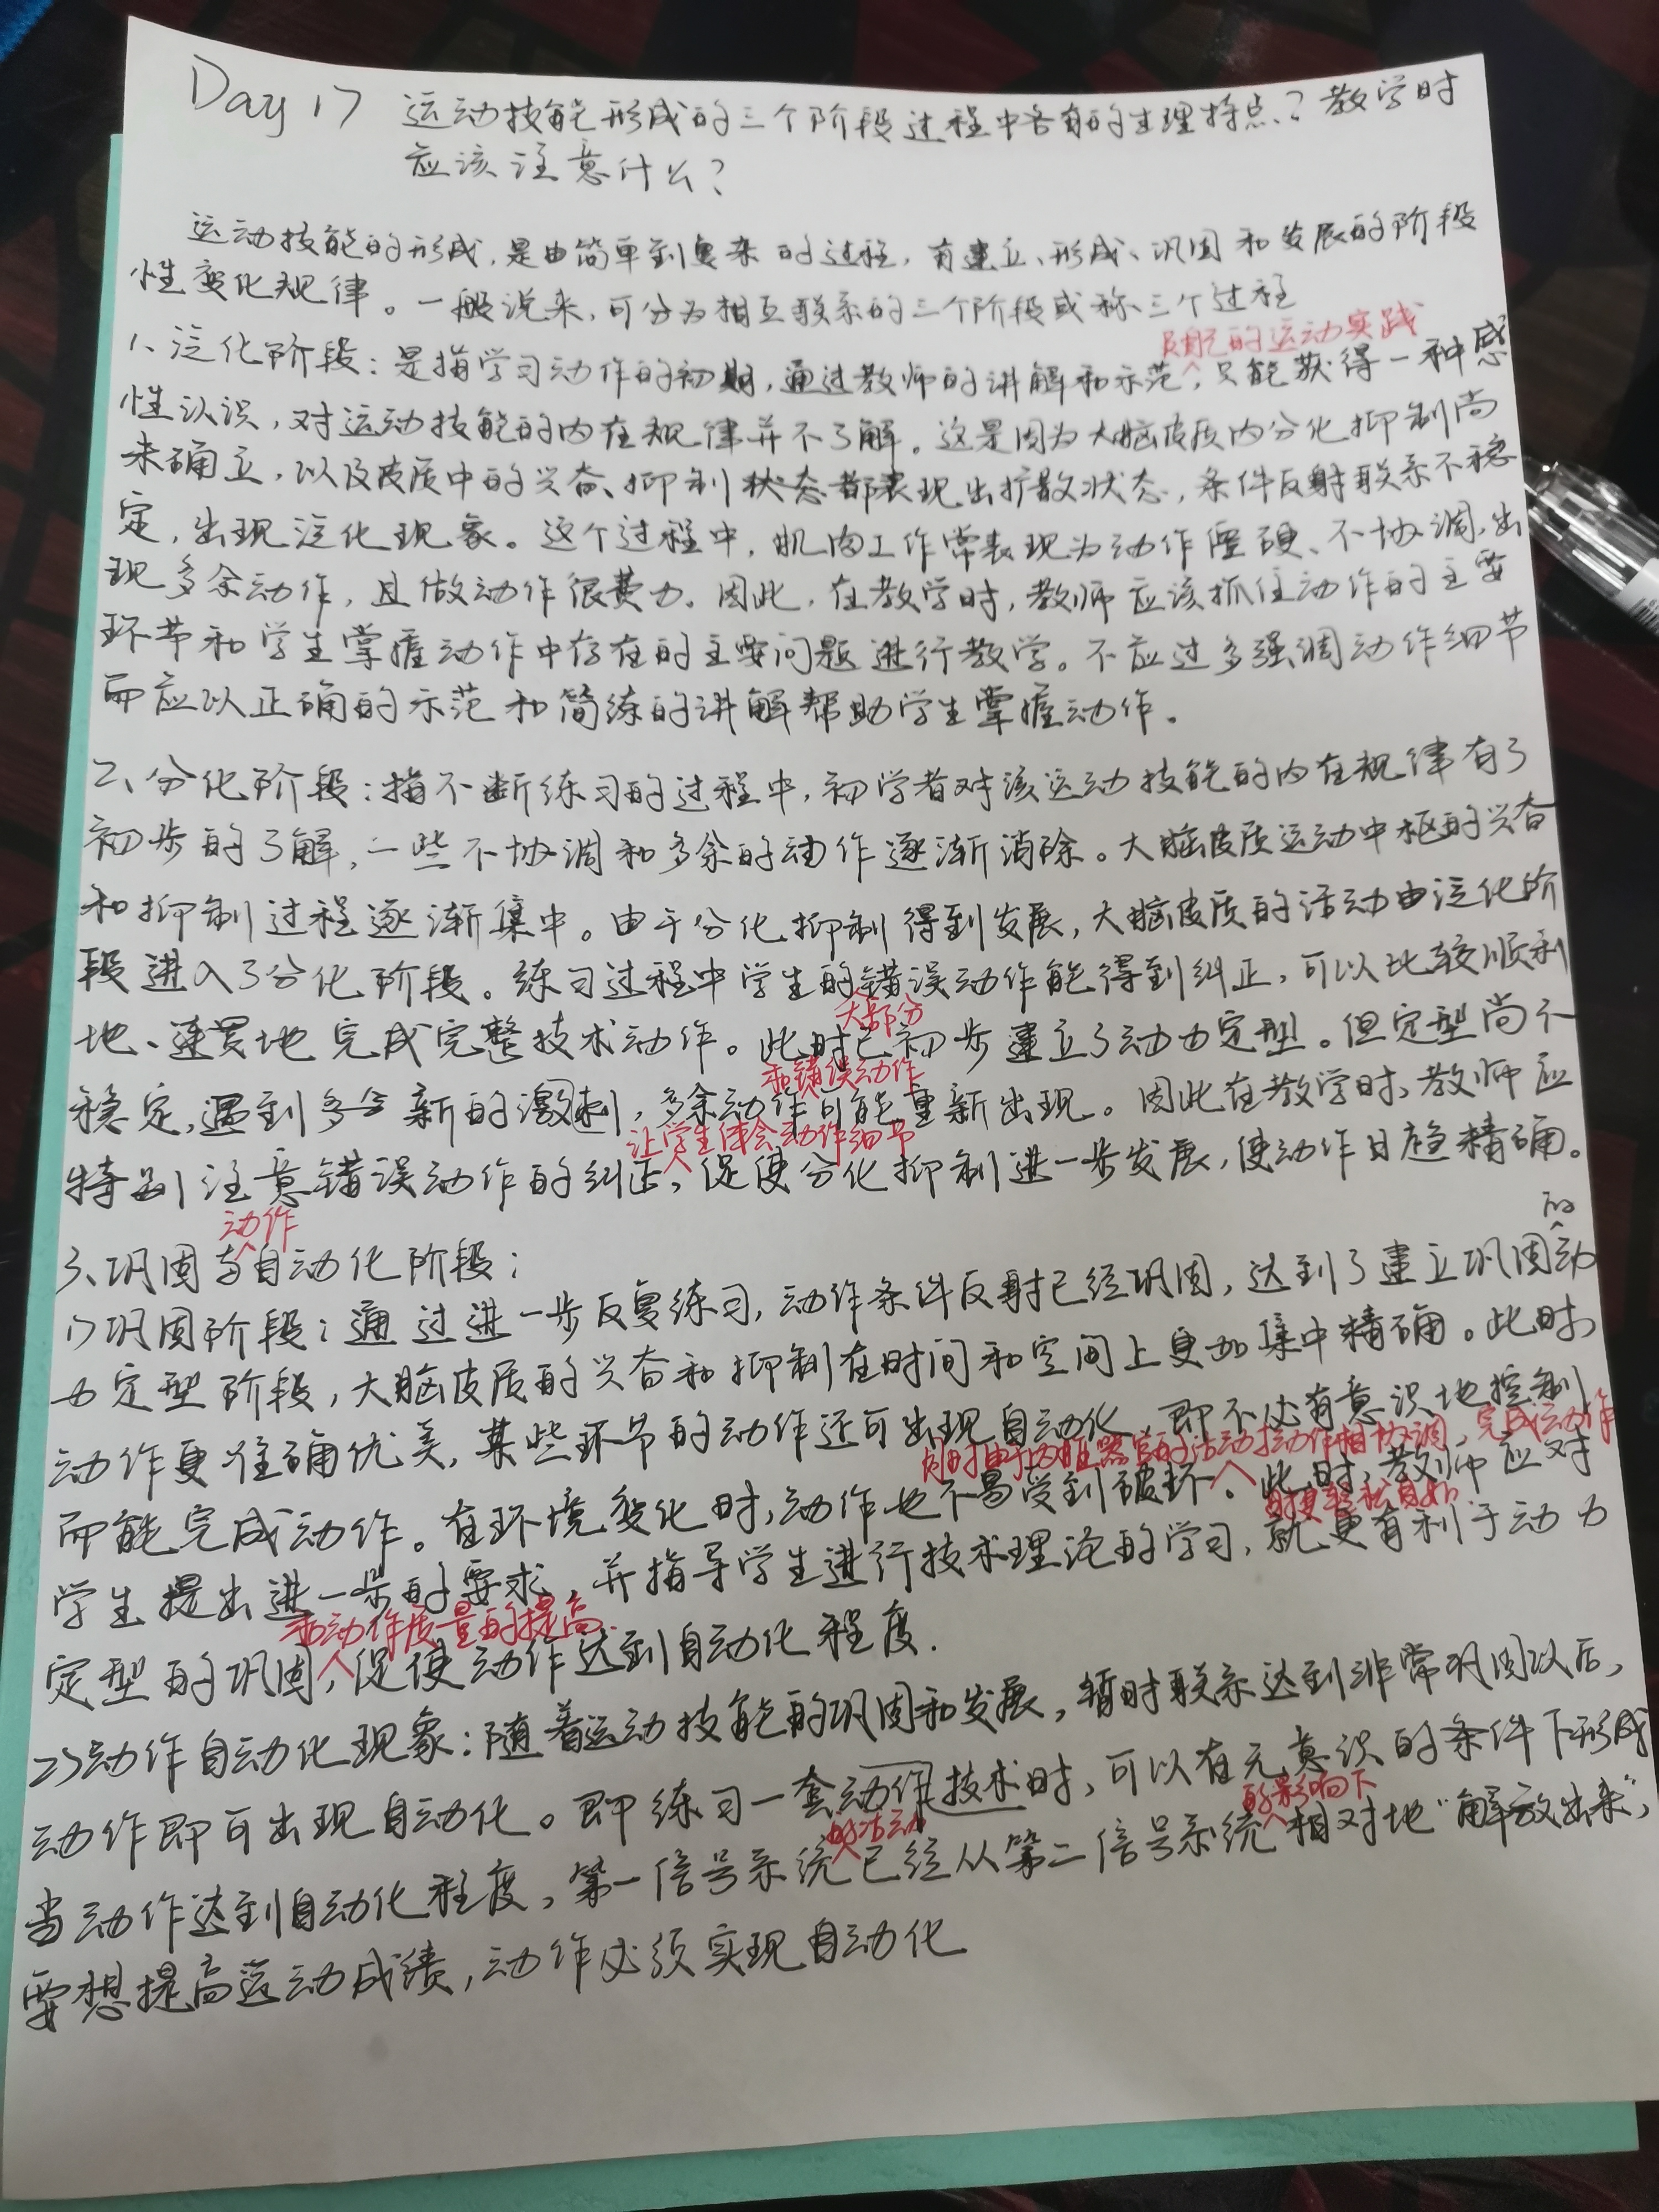 Day 17 运动技能形成的三个阶段过程中各有的生理特点？教学时
应该注意什么？
运动技能的形成，是由简单到复杂的过程，有建立、形成、巩固和发展的阶段
性变化规律。一般说来，可分为相互联系的三个阶段或称三个过程
及自己的运动实践
1、泛化阶段：是指学习动作的初期，通过教师的讲解和示范，只能获得一种感
性认识，对运动技能的内在规律并不了解。这是因为大脑皮质内分化抑制尚
未确立，以及皮质中的兴奋、抑制状态都表现出扩散状态，条件反射联系不稳
定，出现泛化现象。这个过程中，肌肉工作常表现为动作僵硬、不协调，出
现多余动作，且做动作很费力。因此，在教学时，教师应该抓住动作的主要
环节和学生掌握动作中存在的主要问题进行教学。不应过多强调动作细节
而应以正确的示范和简练的讲解帮助学生掌握动作。
2、分化阶段：指不断练习的过程中，初学者对该运动技能的内在规律有了
初步的了解，一些不协调和多余的动作逐渐消除。大脑皮质运动中枢的兴奋
和抑制过程逐渐集中。由于分化抑制得到发展，大脑皮质的活动由泛化阶
段进入了分化阶段。练习过程中学生的错误动作能得到纠正，可以比较顺利
大部分
地、连贯地完成完整技术动作。此时已初步建立了动力定型。但定型尚不
和错误动作
稳定，遇到多余新的激刺，多余动作可能重新出现。因此在教学时，教师应
让学生体会动作细节
特别注意错误动作的纠正，促使分化抑制进一步发展，使动作日趋精确。
动作
3、巩固与自动化阶段：
的
1)巩固阶段：通过进一步反复练习，动作条件反射已经巩固，达到了建立巩固动
力定型阶段，大脑皮质的兴奋和抑制在时间和空间上更加集中精确。此时，
动作更准确优美，某些环节的动作还可出现自动化，即不必有意识地控制
同时由于内脏器官的活动于动作相协调，完成运动作
而能完成动作。在环境变化时，动作也不易受到破坏。此时，教师应对
时更轻松自如
学生提出进一步的要求，并指导学生进行技术理论的学习，就更有利于动力
和动作质量的提高
定型的巩固，促使动作达到自动化程度.
2)动作自动化现象：随着运动技能的巩固和发展，暂时联系达到非常巩固以后，
动作即可出现自动化。即练习一套动作技术时，可以在无意识的条件下形成
的活动 的影响下
当动作达到自动化程度，第一信号系统已经从第二信号系统相对地“解放出来”，
要想提高运动成绩，动作必须实现自动化